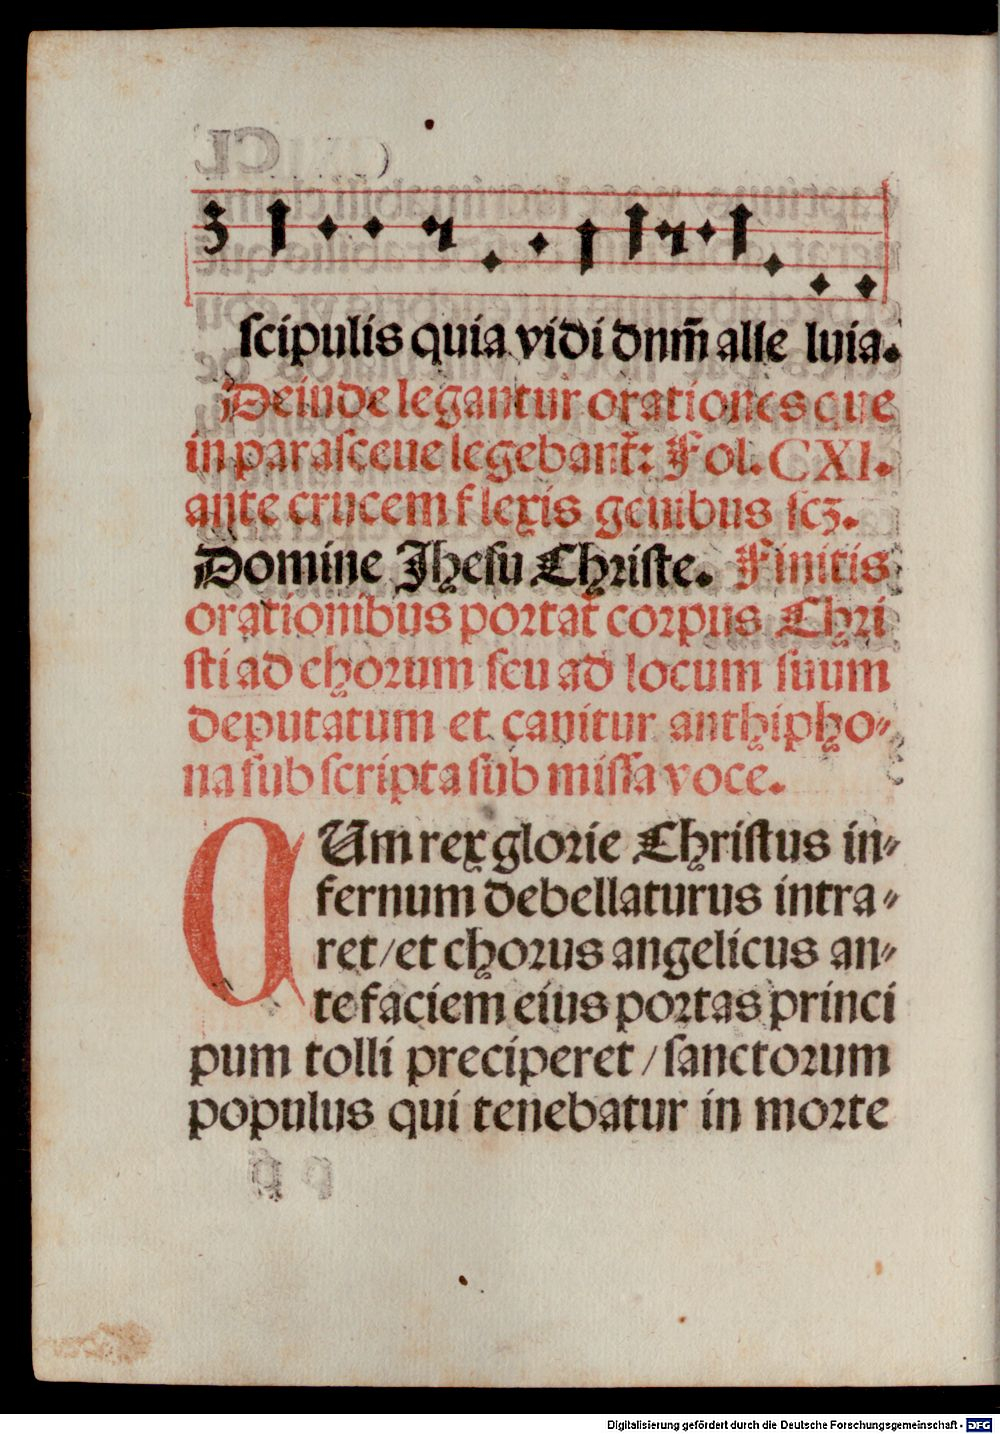 scipulis quia vidi dnm̄ alle luia.
Deinde legantur orationes que
in parasceue legebant᷑: Fol. CXI.
ante crucem flexis genibus scꝫ.
Domine Jhesu Christe. Finitis
orationibus portat᷑ corpus Chri
sti ad chorum seu ad locum suum
deputatum et canitur anthipho⸗
na sub scripta sub missa voce.
CUm rex glorie Christus in⸗
fernum debellaturus intra⸗
ret/et chorus angelicus an⸗
te faciem eius portas princi
pum tolli preciperet/sanctorum
populus qui tenebatur in morte
Digitalisierung gefördert durch die Deutsche Forschungsgemeinschaft - DFG